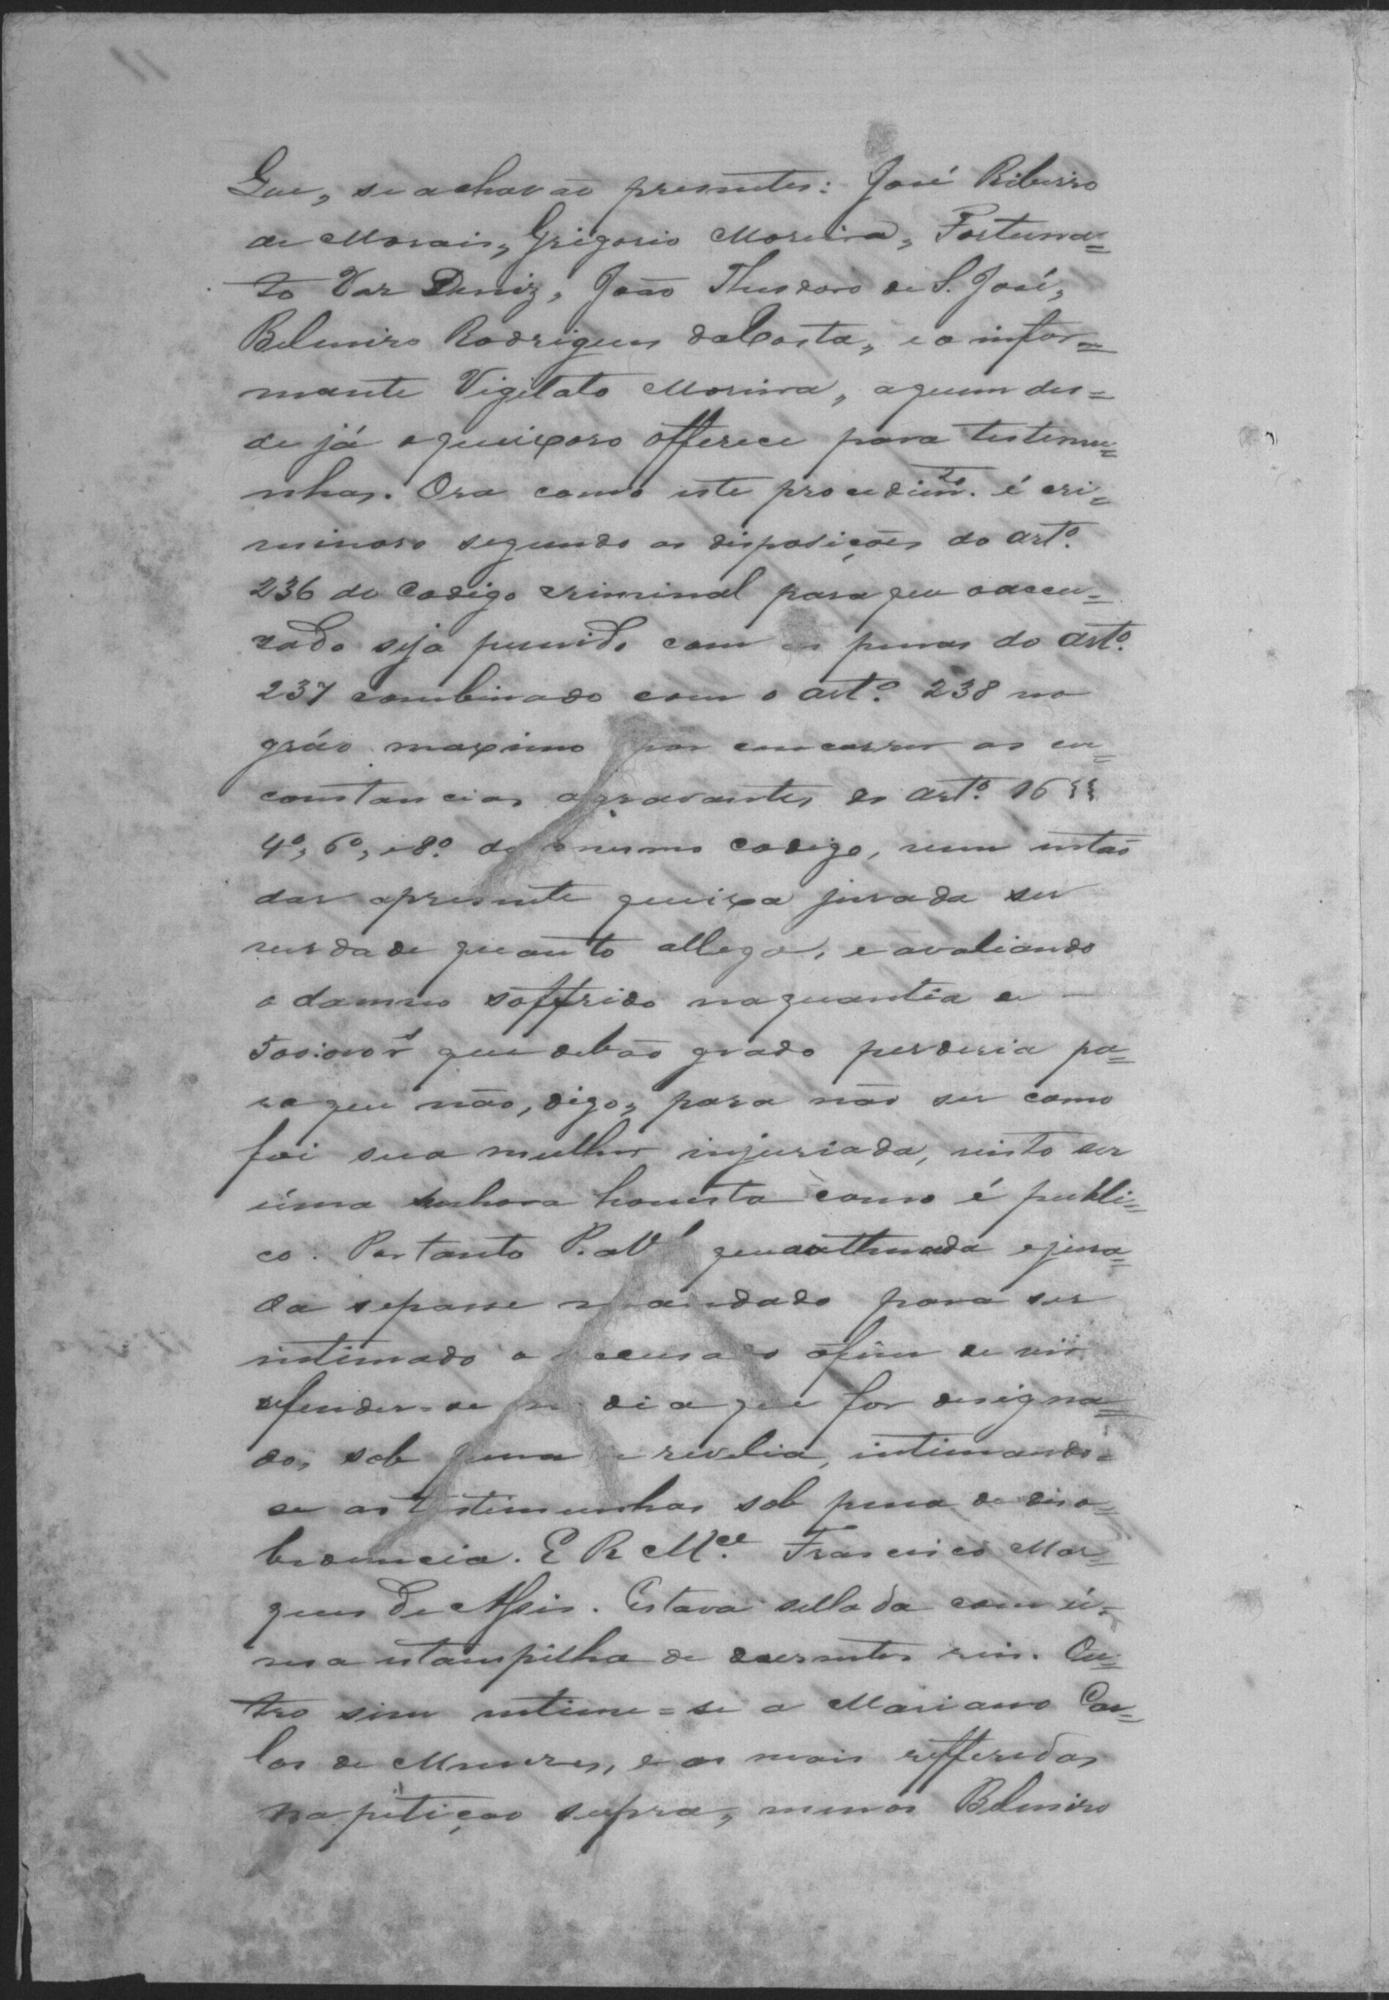 Que, se achavão presentes: José Ribeiro
de Morais, Grigorio Moreira, Fortuna=
to Vaz Deniz, João Theodoro de S. José,
Belmiro Rodrigues da Costa, e o infor=
mante Vigilato Moreira, aquem des=
de já oqueixoso offerece para testemu=
nhas. Ora como este procedim.to é cri=
minoso segundo as disposições do art.o
236 do Codigo criminal para que oaccu=
zado seja punido com as penas do art.o
237 combinado com o art.o 238 no
gráo maximo por concorrer as cir=
constancias agravantes do art.o 16 §§
4o, 6o, e 8o. do mesmo codigo, vem então
dar apresente queixa jurada ser
verdade quanto allega, e avaliando
o damno soffrido naquantia de
500:000rs que debão grado perderia pa=
raque não, digo, para não ser como
foi sua mulher injuriada, visto ser
úma senhora honesta como é publi=
co. Portanto P. a V.S queauthuada ejura=
da sepasse mandado para ser
intimado o accusado afim de vir
defender-se no dia que for designa=
do, sob pena de revelia, intimando=
se as testimunhas sob pena de deso=
bediencia. E R M.ce Francisco Mar=
ques de Assis. Estava sellada com ú=
ma estampilha de duzentos reis. Ou=
tro sim intime=se a Mariano Car=
los de Menezes, e os mais refferidos
na petição supra, menos Belmiro